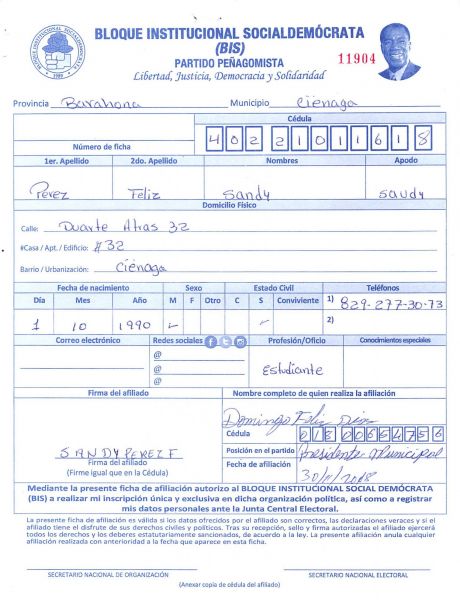 BLOQUE INSTITUCIONAL SOCIALDEMÓCRATA
(BIS)
PARTIDO PEÑAGOMISTA
Libertad, Justicia, Democracia y Solidaridad
11904
BLOQUE INSTITUCIONAL SOCIALDEMOCRATA
1989
Provincia Barahona Municipio Ciénaga
Cédula
Número de ficha 40221011618
1er. Apellido 2do. Apellido Nombres Apodo
Perez Feliz Sandy Saudy
Domicilio Físico
Calle: Duarte Atras 32
#Casa / Apt. / Edificio: #32
Barrio / Urbanización: Ciénaga
Fecha de nacimiento Sexo Estado Civil Teléfonos
Día Mes Año M F Otro C S Conviviente 1) 829-277-30-73
1 10 1990 ✓ ✓ 2)
Correo electrónico Redes sociales Profesión/Oficio Conocimientos especiales
@
@ Estudiante
@
Firma del afiliado Nombre completo de quien realiza la afiliación
Domingo Feliz
Cédula
SANDY PEREZ F Posición en el partido Presidente Municipal
Firma del afiliado
(Firme igual que en la Cédula) Fecha de afiliación 30/11/2018
Mediante la presente ficha de afiliación autorizo al BLOQUE INSTITUCIONAL SOCIAL DEMÓCRATA
(BIS) a realizar mi inscripción única y exclusiva en dicha organización política, así como a registrar
mis datos personales ante la Junta Central Electoral.
La presente ficha de afiliación es válida si los datos ofrecidos por el afiliado son correctos, las declaraciones veraces y si el
afiliado tiene el disfrute de sus derechos civiles y políticos. Tras su recepción, sello y firma autorizada el afiliado ejercerá
todos los derechos y los deberes estatutariamente sancionados, de acuerdo a la ley. La presente afiliación anula cualquier
afiliación realizada con anterioridad a la fecha que aparece en esta ficha.
SECRETARIO NACIONAL DE ORGANIZACIÓN SECRETARIO NACIONAL ELECTORAL
(Anexar copia de cédula del afiliado)